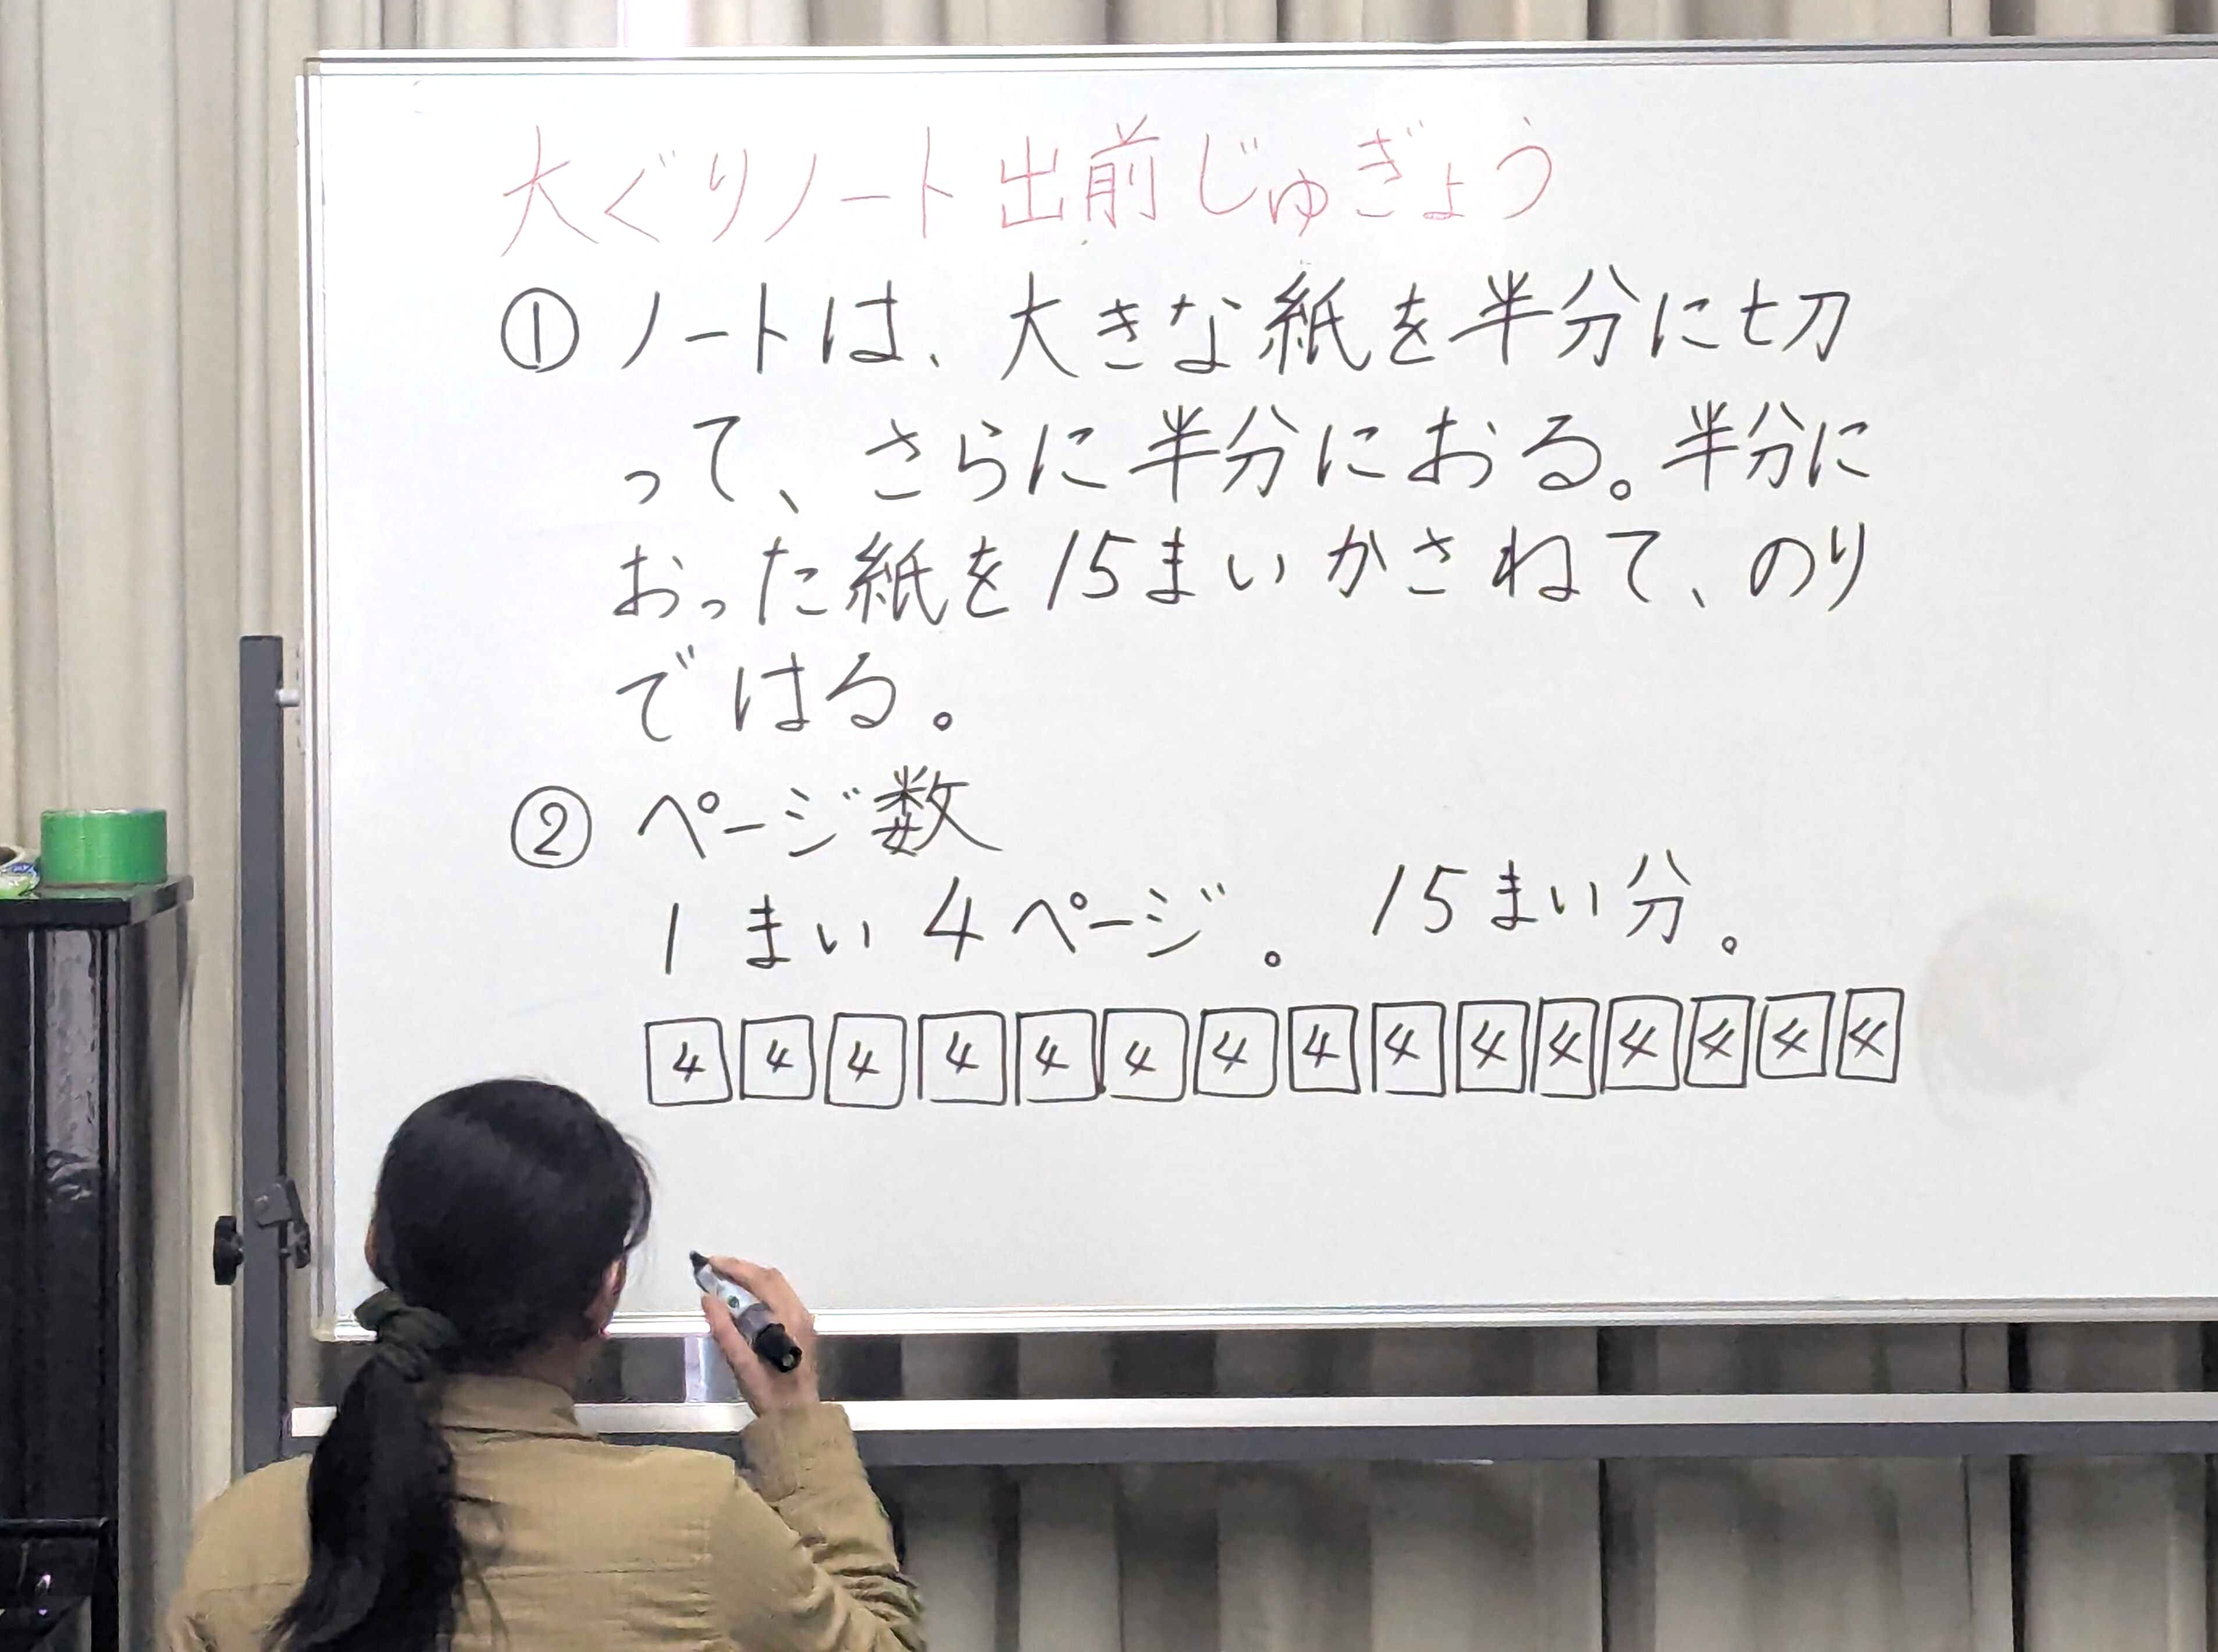 大ぐりノート出前じゅぎょう
① ノートは、大きな紙を半分に切
って、さらに半分におる。半分に
おった紙を15まいかさねて、のり
ではる。
② ページ数
1まい4ページ。 15まい分。
4 4 4 4 4 4 4 4 4 4 4 4 4 4 4